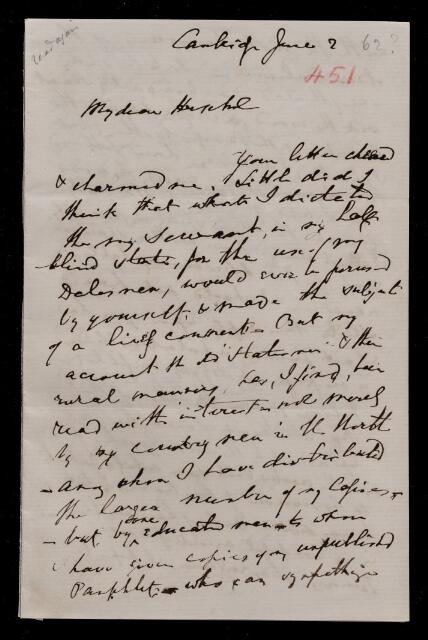 read again
Cambridge June 2 62?
451
My dear Herschel
Your letter cheered
& charmed me. Little did I
think that what I dictated
to my Servant, in my half
blind state, for the use of my
Dalesmen, would ever be perused
by yourself & made the subject
of a living comment. But my
account of the old Statesmen & their
rural manners has, I find, been
read with interest not merely
by my countrymen in the North
among whom I have distributed
the larger number of my Copies
but by some educated men to whom
I have given copies of my unpublished
Pamphlet who can sympathize